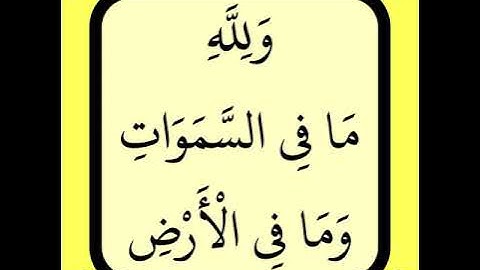 وَلِلَّهِ
مَا فِي السَّمَوَاتِ
وَمَا فِي الْأَرْضِ